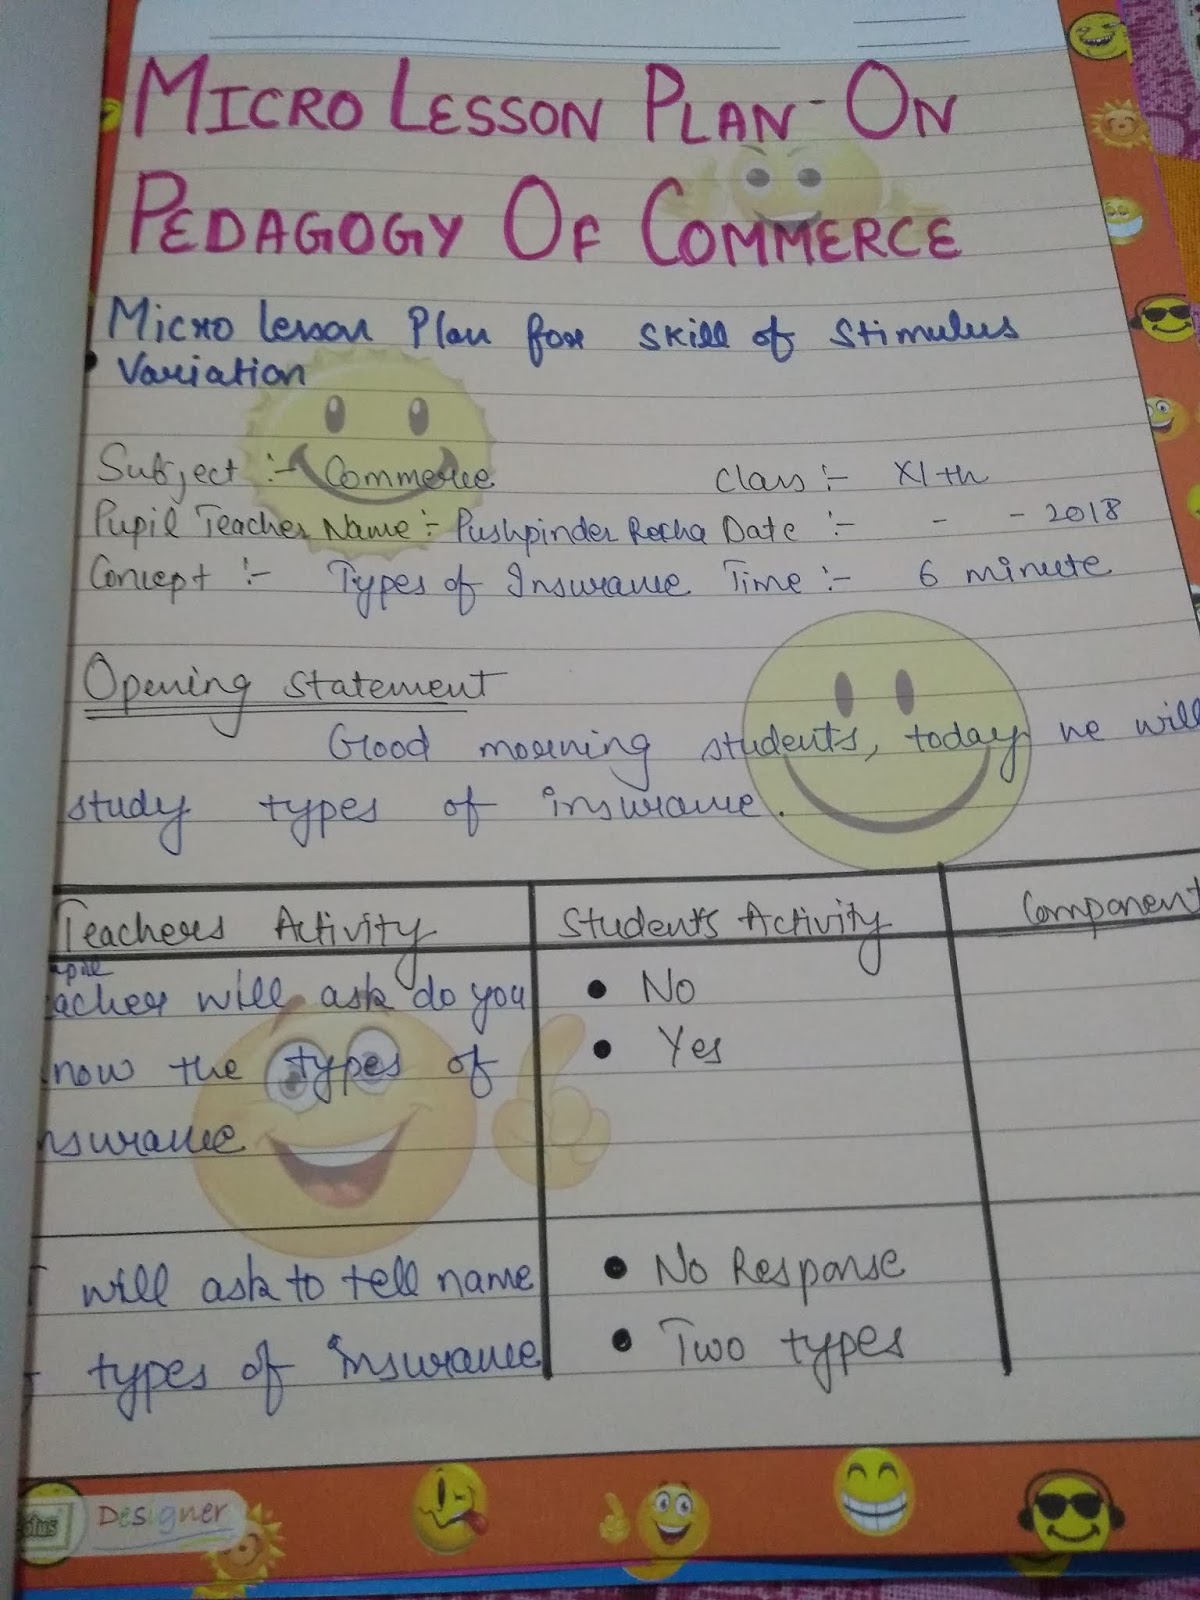 MICRO LESSON PLAN - ON
PEDAGOGY OF COMMERCE
Micro lesson Plan for skill of stimulus
Variation
Subject :- Commerce Class :- XI th
Pupil Teacher Name :- Pushpinder Date :- - - 2018
Concept :- Types of Insurance Time :- 6 minute
Opening statement
Good morning students, today we will
study types of insurance.
Teachers Activity Students Activity Component
acher will ask do you • No
now the types of • Yes
nsurance
will ask to tell name • No Response
types of insurance • Two types
Designer